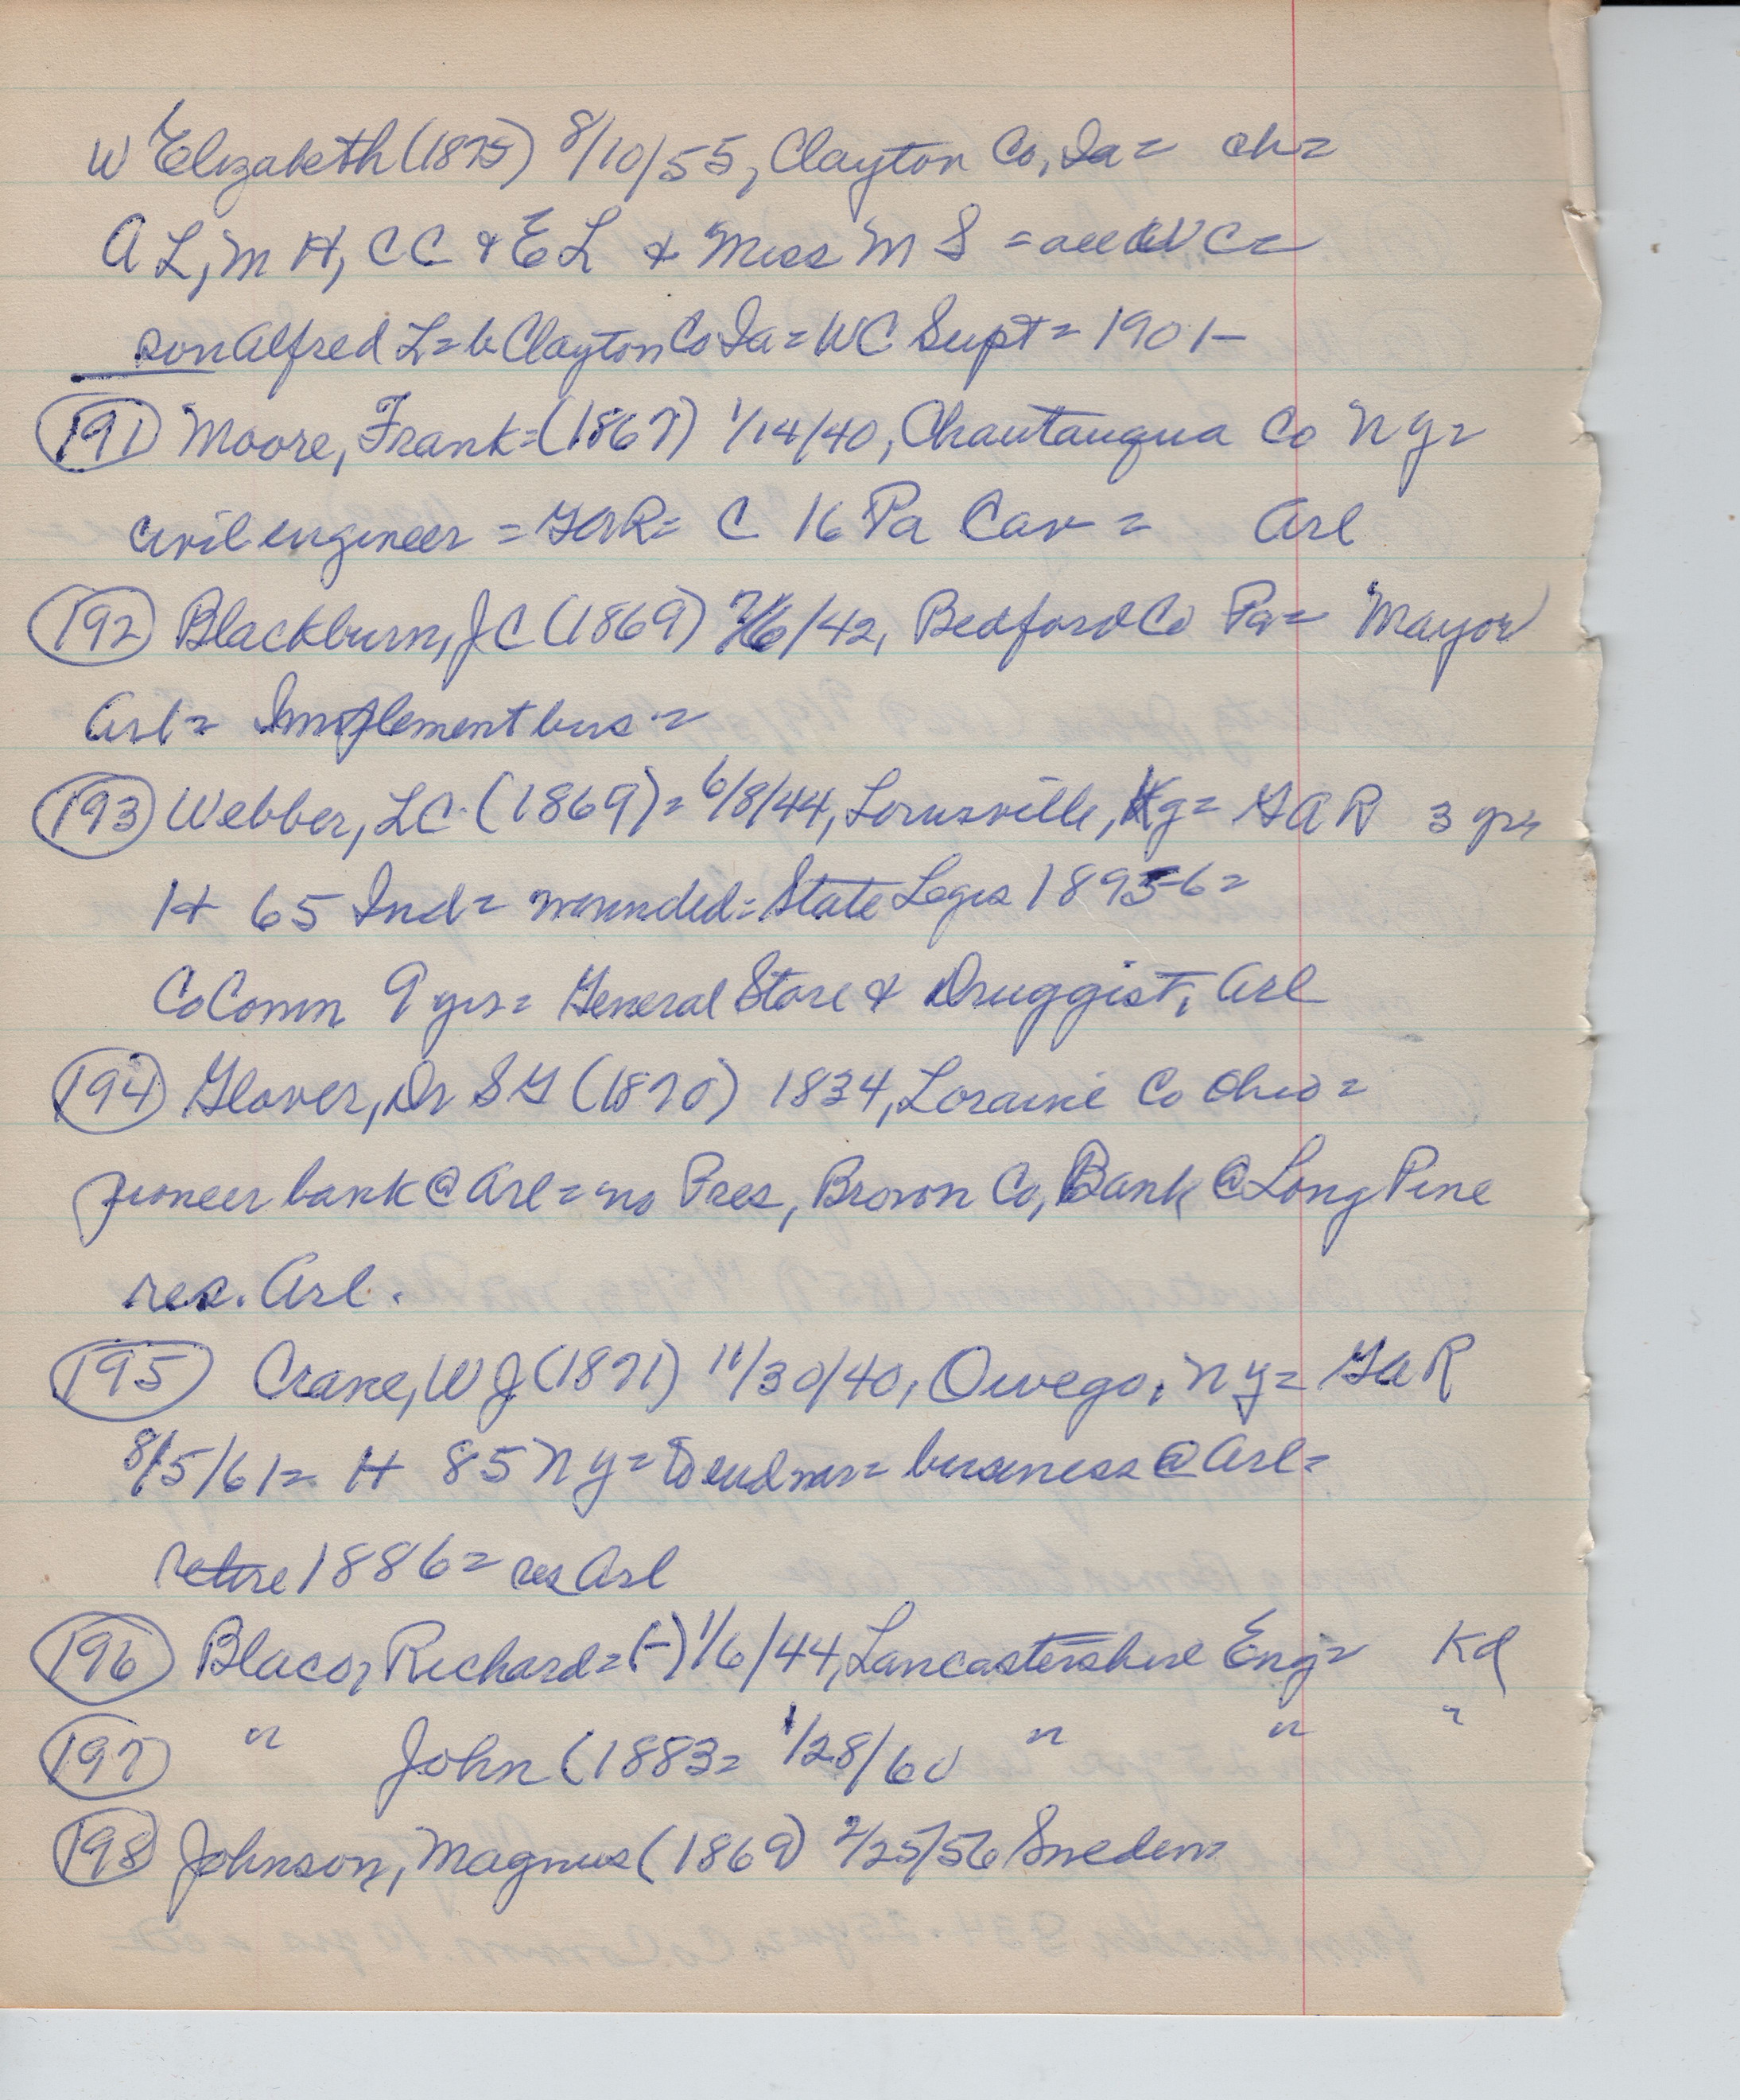 W Elizabeth (1875) 8/10/55, Clayton Co, Ia = ch =
A L, M H, C C & E L & Miss M S = all W C =
son Alfred L = b Clayton Co Ia = WC Supt = 1901-
191 Moore, Frank = (1867) 1/14/40, Chautauqua Co N Y =
civil engineer = GAR = C 16 Pa Cav = Arl
192 Blackburn, J C (1869) 7/6/42, Bedford Co Pa = Mayor
Arl = Implement bus =
193 Webber, L C. (1869) = 6/8/44, Louisville, Ky = G A R 3 yrs
H 65 Ind = wounded = State Legis 1895-6 =
Co Comm 9 yrs = General Store & Druggist, Arl
194 Glover, Dr S G (1870) 1834, Loraine Co Ohio =
pioneer bank @ Arl = no Pres, Brown Co, Bank @ Long Pine
res. Arl.
195 Crane, W J (1871) 11/30/40, Owego, N Y = G A R
8/5/61 = H 85 N Y = to end war = business @ Arl =
retire 1886 = res Arl
196 Blaco, Richard = (-) 1/6/44, Lancastershire Eng = Kd
197 " John (1883 = 1/28/60 " " "
198 Johnson, Magnus (1869) 2/25/56 Sweden =